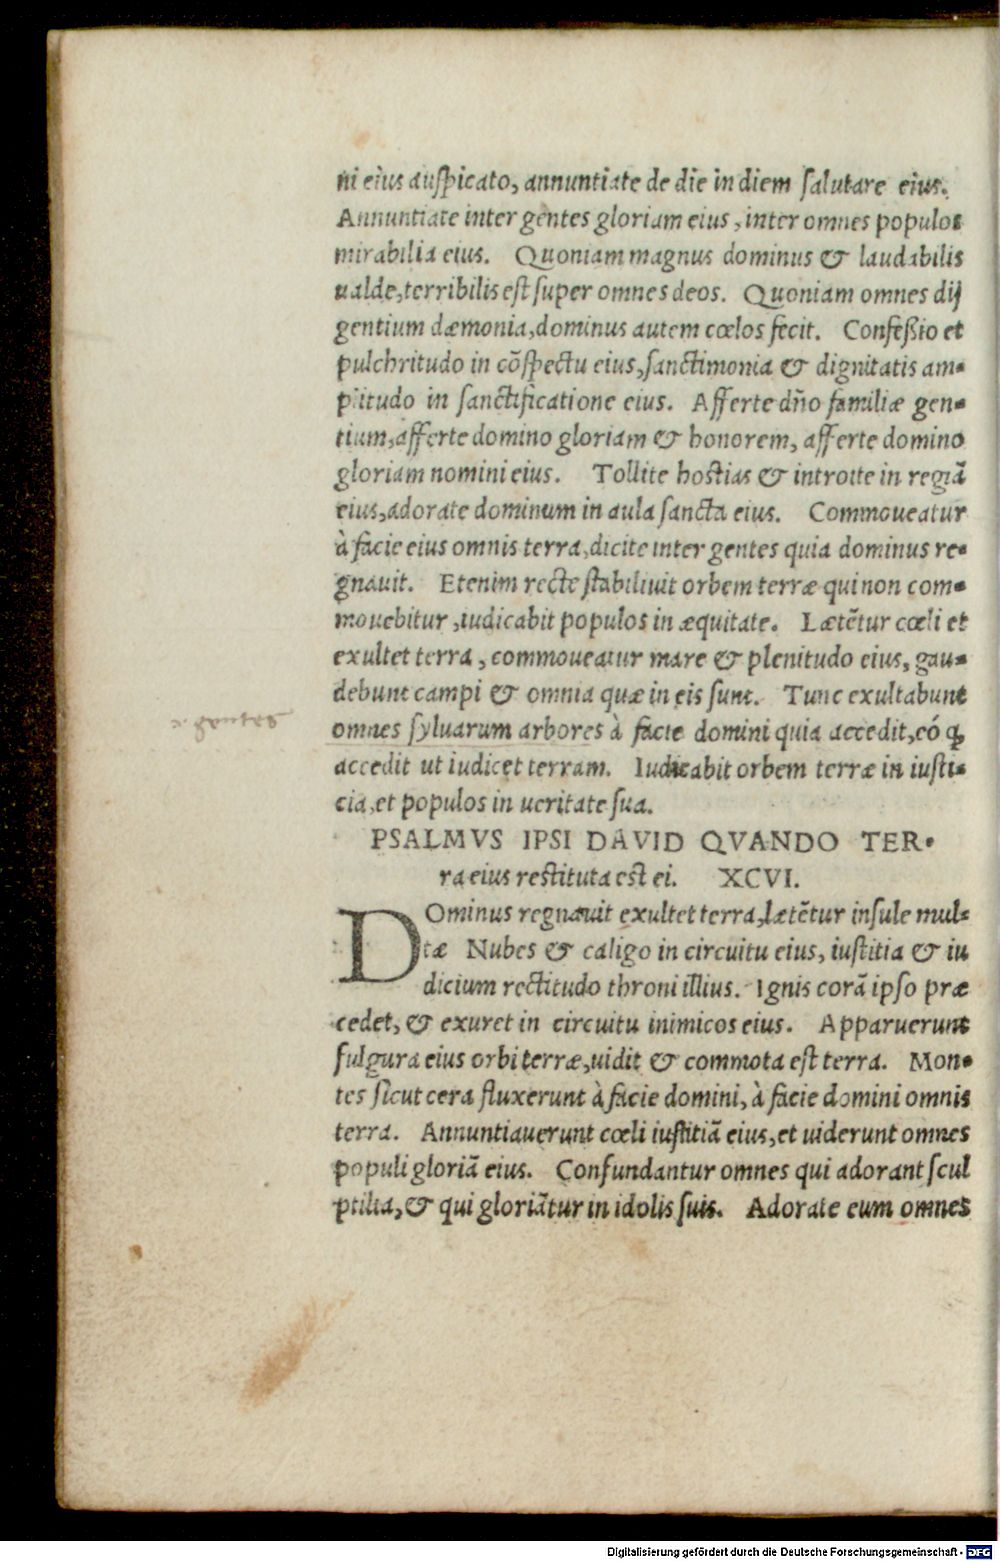 ni eius auspicato, annuntiate de die in diem salutare eius.
Annuntiate inter gentes gloriam eius, inter omnes populos
mirabilia eius. Quoniam magnus dominus & laudabilis
ualde, terribilis est super omnes deos. Quoniam omnes dij
gentium dæmonia, dominus autem cœlos fecit. Confeßio et
pulchritudo in cōspectu eius, sanctimonia & dignitatis am-
plitudo in sanctificatione eius. Afferte dño familiæ gen-
tium, afferte domino gloriam & honorem, afferte domino
gloriam nomini eius. Tollite hostias & introite in regiā
eius, adorate dominum in aula sancta eius. Commoueatur
à facie eius omnis terra, dicite inter gentes quia dominus re-
gnauit. Etenim recte stabiliuit orbem terræ qui non com-
mouebitur, iudicabit populos in æquitate. Lætētur cœli et
exultet terra, commoueatur mare & plenitudo eius, gau-
debunt campi & omnia quæ in eis sunt. Tunc exultabunt
omnes syluarum arbores à facie domini quia accedit, eó ꝙ
accedit ut iudicet terram. Iudicabit orbem terræ in iusti-
cia, et populos in ueritate sua.
PSALMVS IPSI DAVID QVANDO TER-
ra eius restituta est ei. XCVI.
DOminus regnauit exultet terra, lætētur insule mul-
tæ Nubes & caligo in circuitu eius, iustitia & iu
dicium rectitudo throni illius. Ignis corā ipso præ
cedet, & exuret in circuitu inimicos eius. Apparuerunt
fulgura eius orbi terræ, uidit & commota est terra. Mon-
tes sicut cera fluxerunt à facie domini, à facie domini omnis
terra. Annuntiauerunt cœli iustitiā eius, et uiderunt omnes
populi gloriā eius. Confundantur omnes qui adorant scul
ptilia, & qui gloriātur in idolis suis. Adorate eum omnes
Digitalisierung gefördert durch die Deutsche Forschungsgemeinschaft - DFG